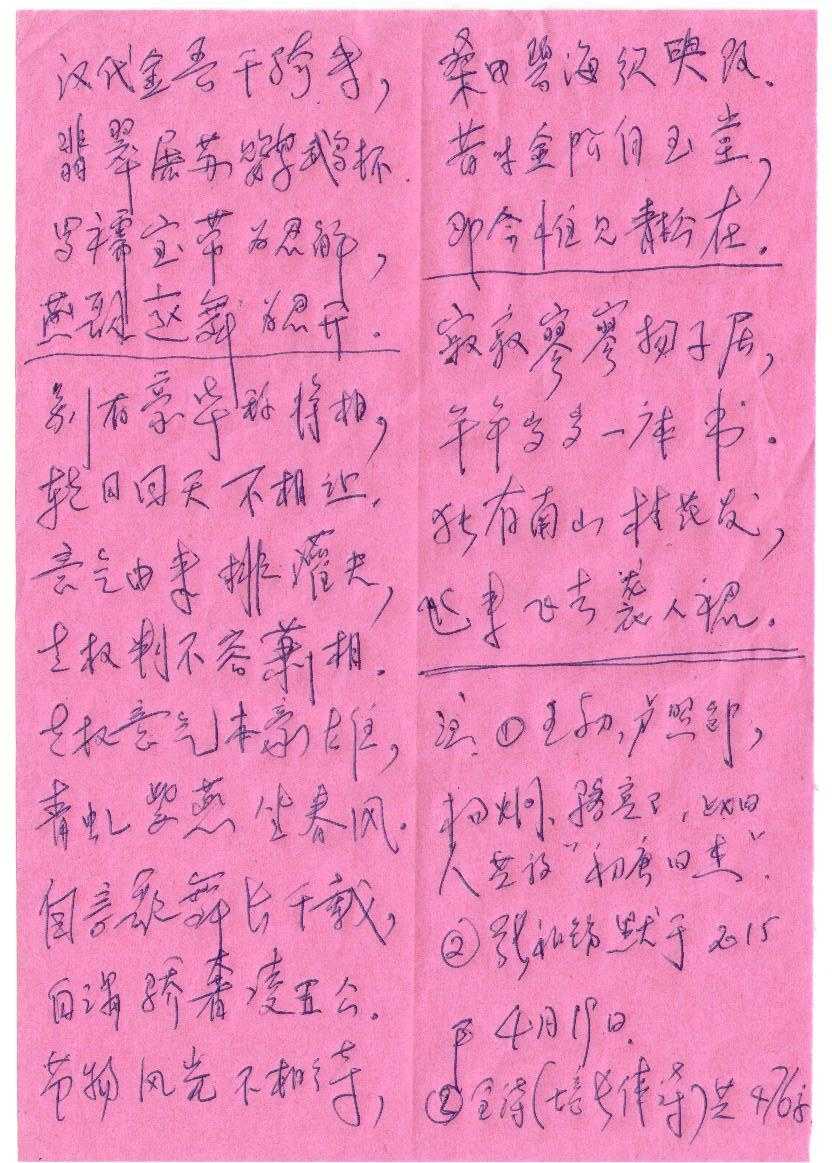 汉代金吾千骑来,
翡翠屠苏鹦鹉杯.
罗襦宝带为君解,
燕歌赵舞为君开.
别有豪华称将相,
转日回天不相让.
意气由来排灌夫,
专权判不容萧相.
专权意气本豪雄,
青虬紫燕坐春风.
自言歌舞长千载,
自谓骄奢凌五公.
节物风光不相待,
桑田碧海须臾改.
昔时金阶白玉堂,
即今惟见青松在.
寂寂寥寥扬子居,
年年岁岁一床书.
独有南山桂花发,
飞来飞去袭人裾.
注. ①王勃,卢照邻,
杨炯、骆宾王,
人 "初唐四杰".
② 默于 2015
年4月19日.
③全诗( )共476字